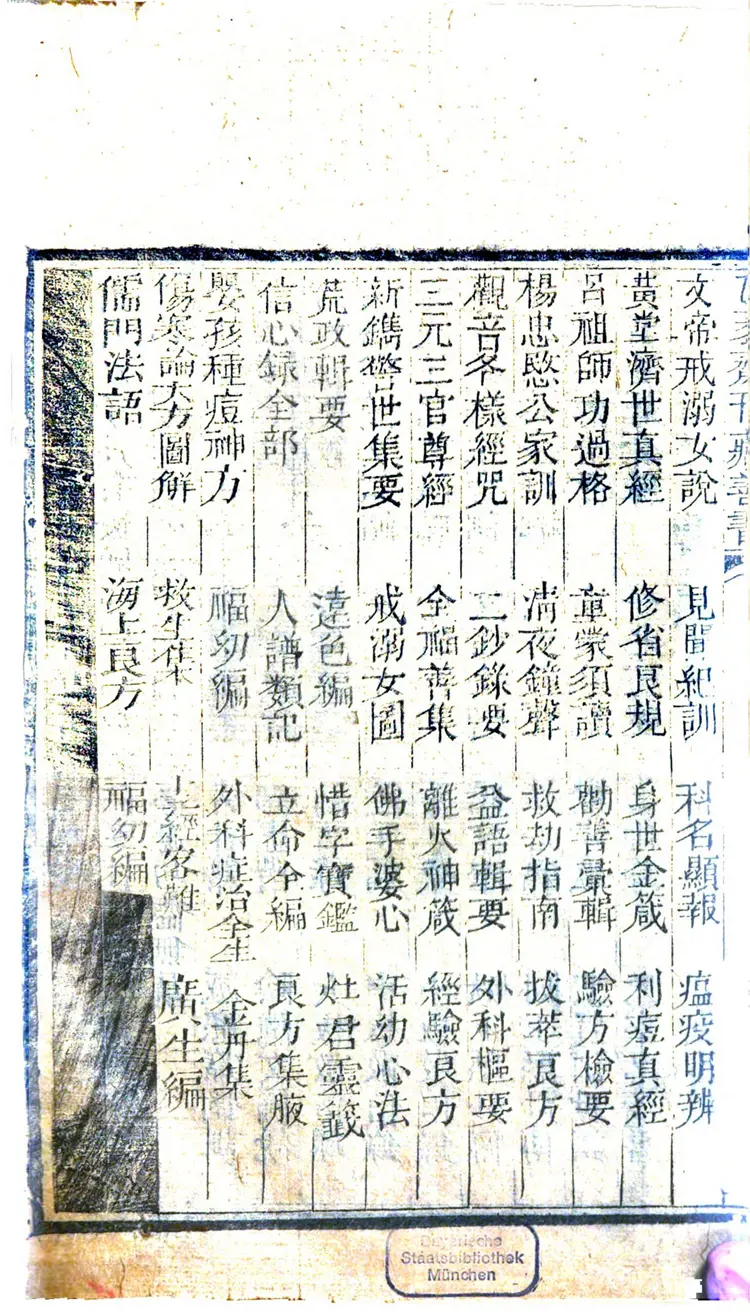 齋刊藏善書
文帝戒溺女說 見聞紀訓 科名顯報 瘟疫明辨
黃堂濟世真經 修省良規 身世金箴 利痘真經
呂祖師功過格 童蒙須讀 勸善彙輯 驗方檢要
楊忠愍公家訓 清夜鐘聲 救劫指南 拔萃良方
觀音各樣經咒 二鈔錄要 益語輯要 外科樞要
三元三官尊經 全福善集 離火神箴 經驗良方
新鐫警世集要 戒溺女圖 佛手婆心 活幼心法
荒政輯要 遠色編 惜字寶鑑 灶君靈籤
信心録全部 人譜類記 立命全編 良方集腋
嬰孩種痘神方 福幼編 外科症治全生 金丹集
傷寒論大方圖解 救生集 客難 廣生編
儒門法語 海上良方 福幼編
Bayerische
Staatsbibliothek
München